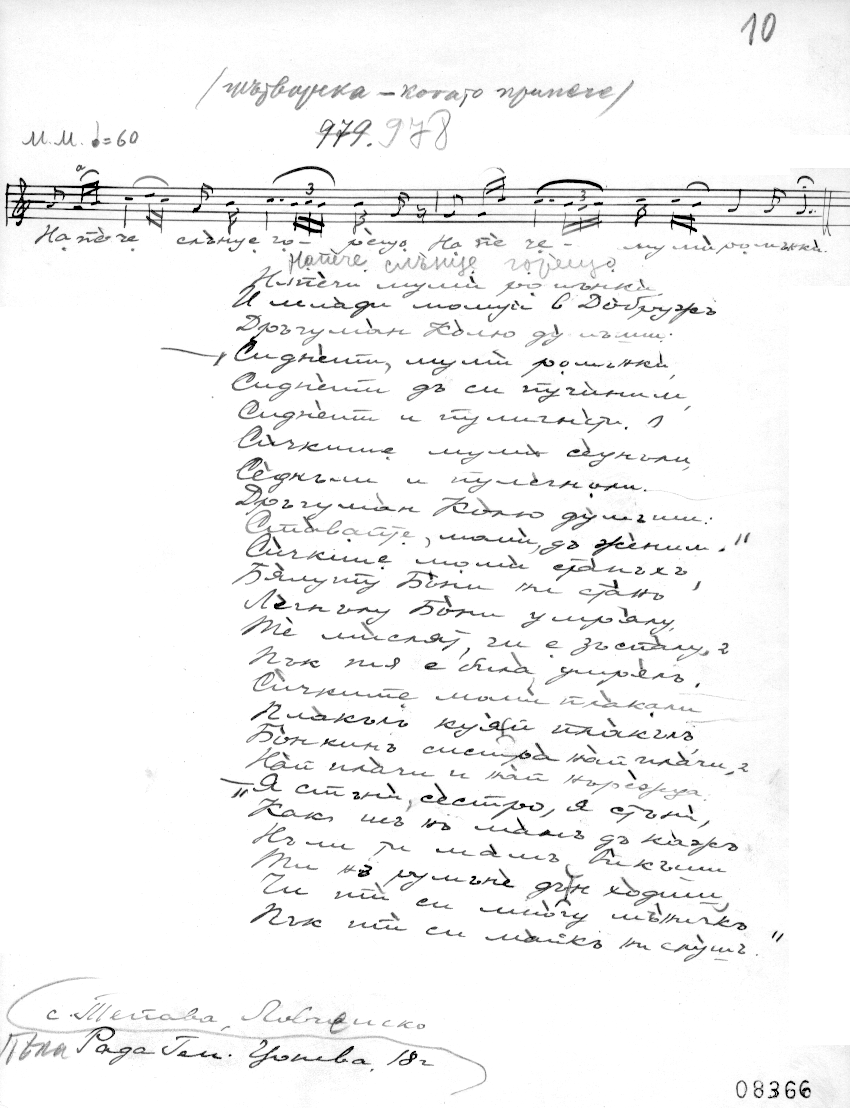 10
(жътварска – когато припече)
979. 978
М.М. ♩=60
3 3
Напече слънце го- рещо На пе че - муми ромънки.
Напече слънце горещо
Напечи муми ромънки
И млади момци в Добружъ
Дръгуман Колю ду мъши:
Сиднети, муми ромънки,
Сиднети дъ си пучиним,
Сиднети и пулигнети.
Сичките муми седнъли,
Седнъли и пулегнали.
Дръгуман Колю думъши:
Ставайте, моми, дъ женим."
Сичките моми станъхъ,
Бялуту Бони ни стана
Легнълу Бони умряну,
Те мислят, чи е зъспалу,
Пък тя е била умрялъ.
Сичките моми плакали
Плакълъ куяй плакълъ
Бонкинъ систра най плачи,
Най плачи и най нърежда:
"Я стъни, сестро, я стъни,
Какъ шъ нъ мамъ дъ кажъ
Нъли ти мамъ викъши
Ти нъ румъне дън ходиш,
Чи ти си многу мъничкъ
Пък ти си майкъ ни слушъ."
с. Тепава, Ловчанско
Пяла Рада Ген. Цонева, 18г
08366